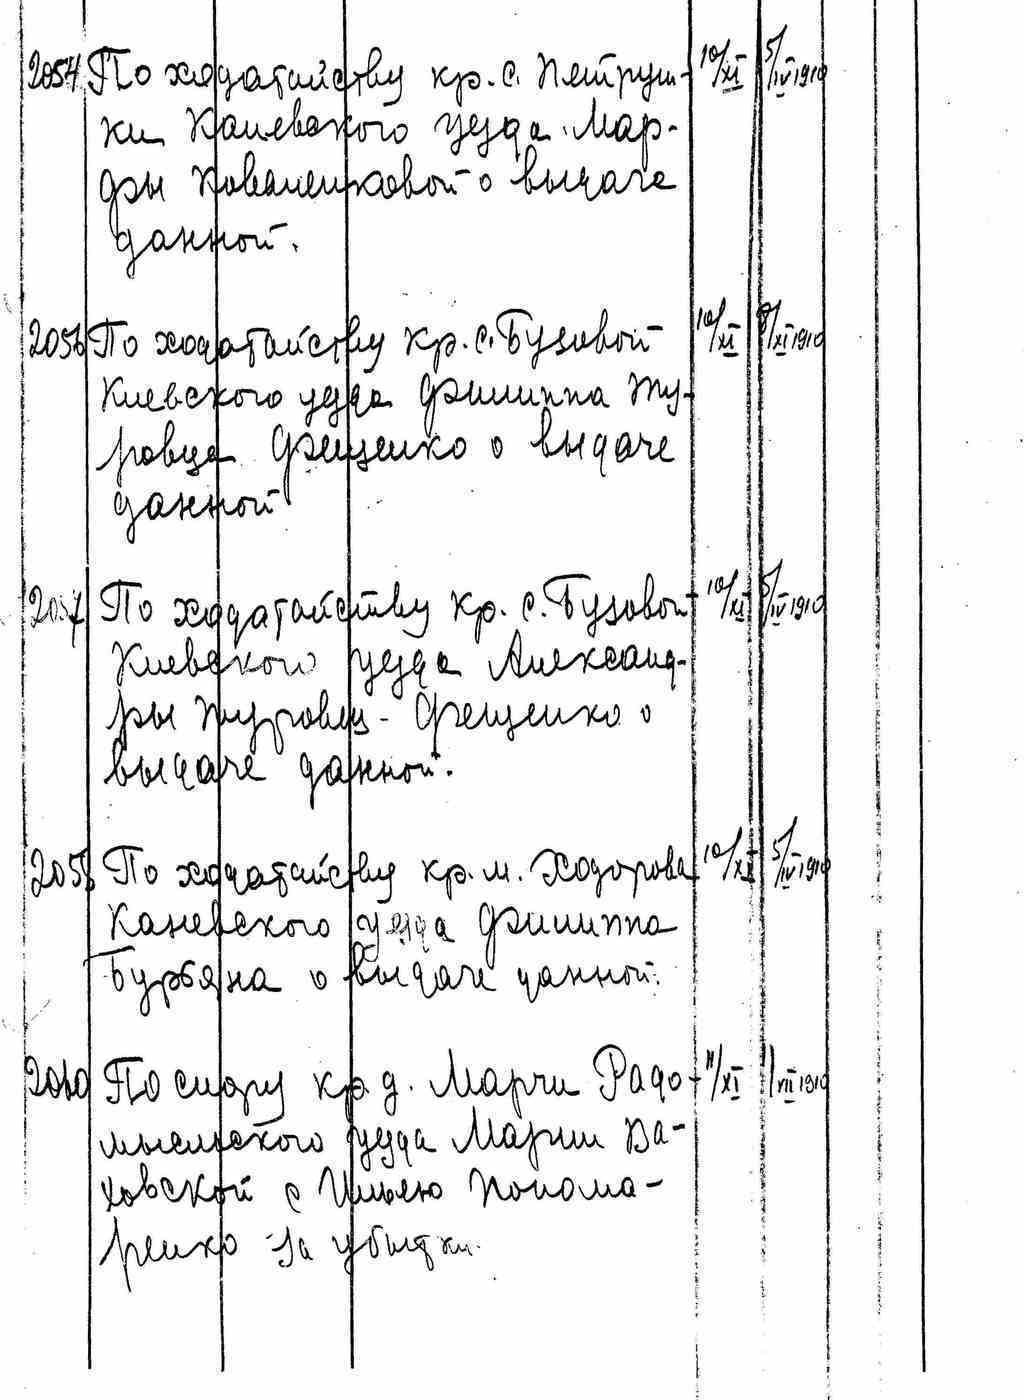 2054 По ходатайству кр. с. Петруш- 10/XI 5/IV 1910
ки Каневского уезда Мар-
фы Коваленковой о выдаче
данной.
2056 По ходатайству кр. с. Бузовой 10/XI 8/XI 1910
Киевского уезда Филиппа Жу-
ровца Фещенко о выдаче
данной
2057 По ходатайству кр. с. Бузовой 10/XI 5/IV 1910
Киевского уезда Александ-
ры Журовец-Фещенко о
выдаче данной.
2058 По ходатайству кр. м. Ходорова 10/XI 5/IV 1910
Каневского уезда Филиппа
Бурбяна о выдаче данной.
2060 По спору кр. д. Марчи Радо- 11/XI 1/VII 1910
мысльского уезда Марии Ва-
ховской с Ильею Понома-
ренко за убытки.